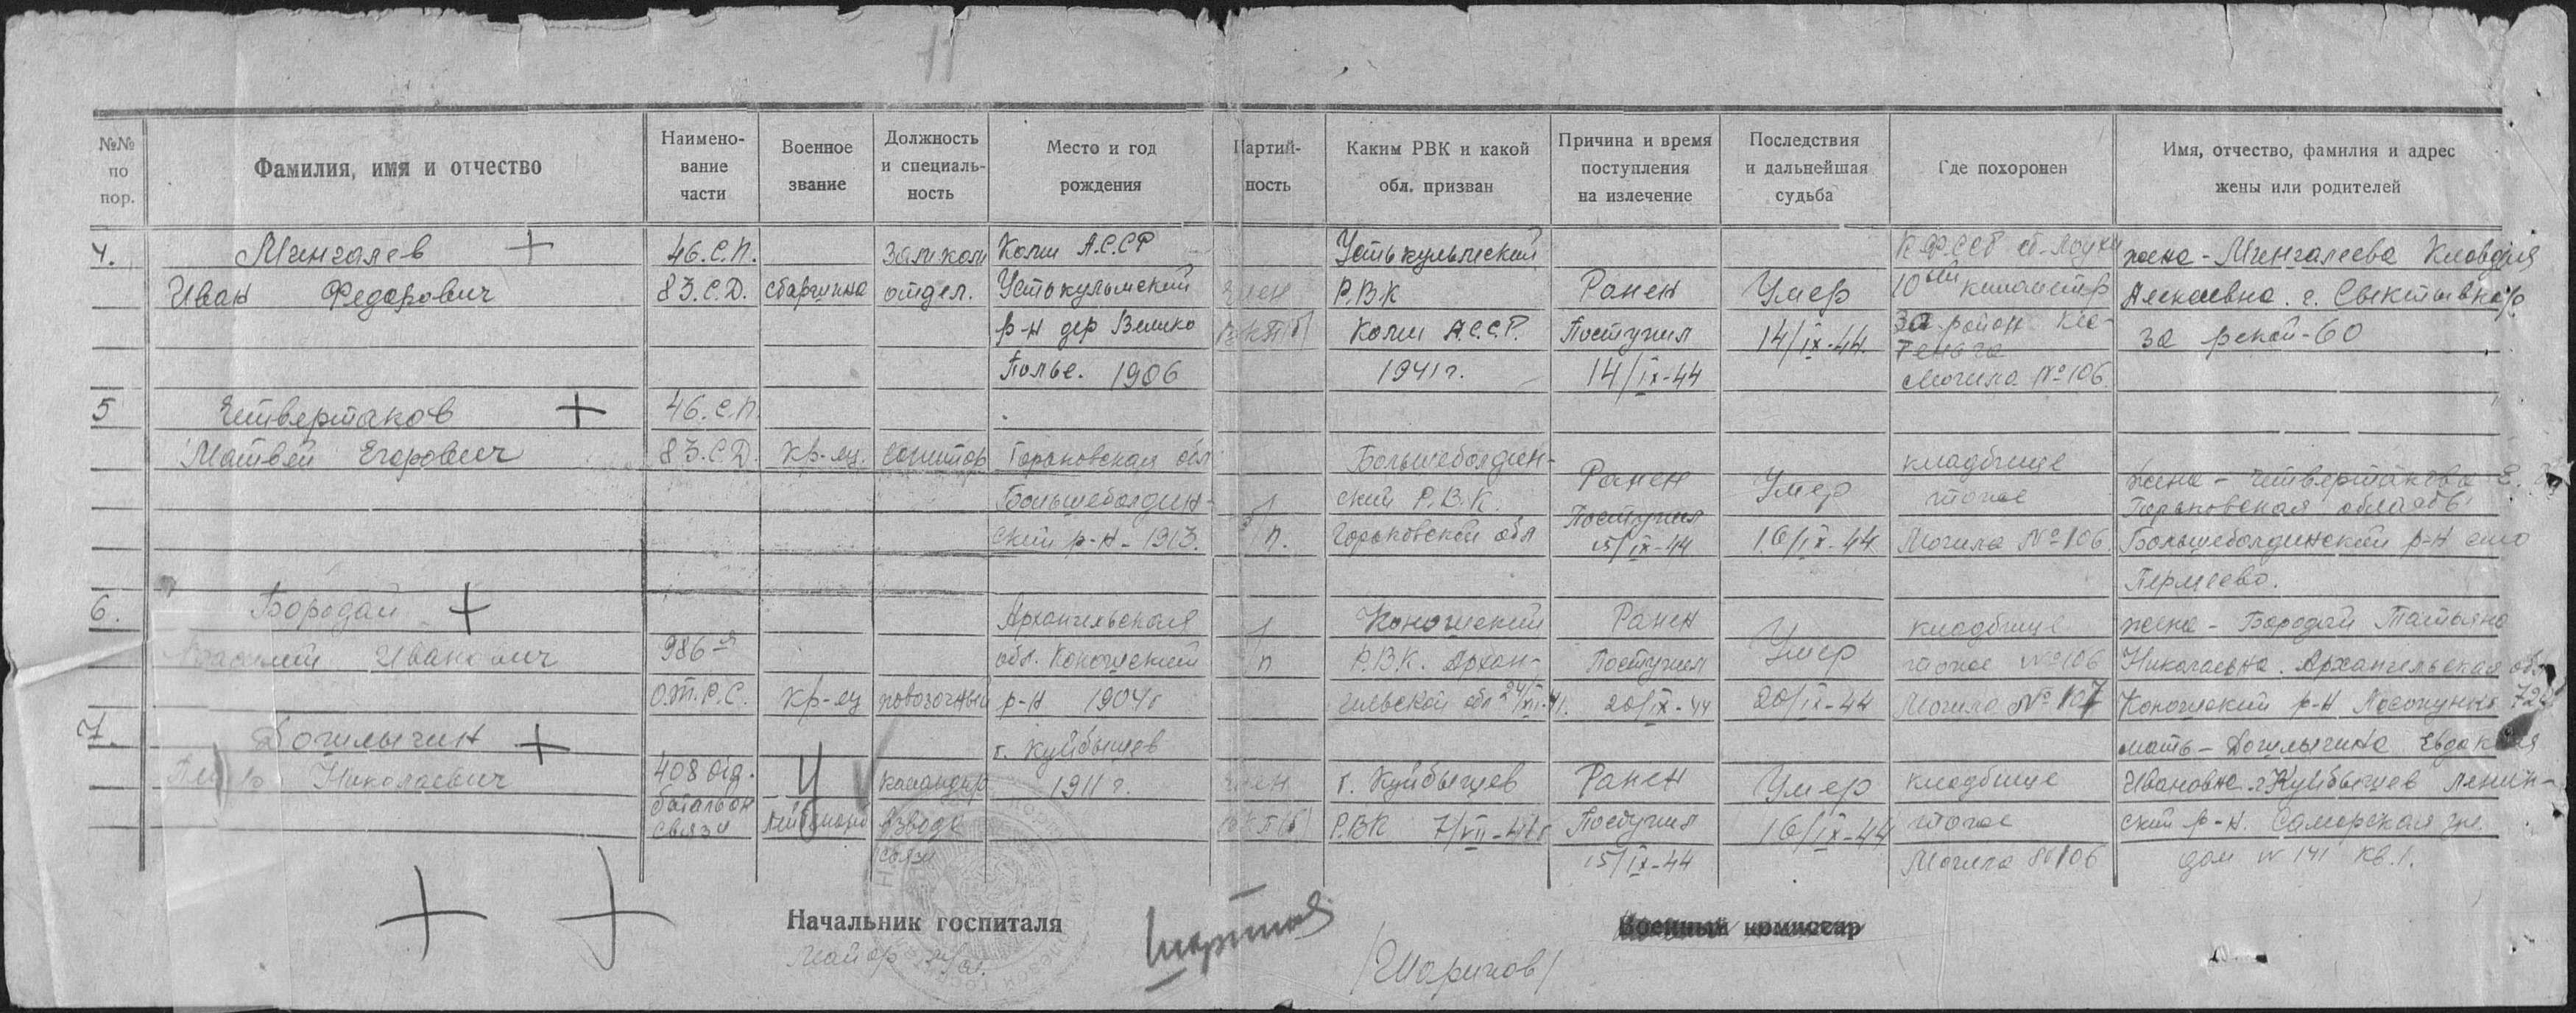 №№ по пор.
Фамилия, имя и отчество
Наимено-
вание
части
Военное
звание
Должность
и специаль-
ность
Место и год
рождения
Партий-
ность
Каким РВК и какой
обл. призван
Причина и время
поступления
на излечение
Последствия
и дальнейшая
судьба
Где похоронен
Имя, отчество, фамилия и адрес
жены или родителей
4.
Мингалев
Иван Федорович
46.С.П.
83.С.Д.
старшина
Замком
отдел.
Коми А.С.С.Р
Устькуломский
р-н дер Велико
Полье. 1906
член
ВКП(б)
Устькуломский
Р.В.К
Коми А.С.С.Р.
1941г.
Ранен
Поступил
14/IX-44
Умер
14/IX-44.
К.Ф.ССР ст-Лоухи
10ый километр
район
Могила №106.
жена - Мингалеева Клавдия
г. Сыктывкар
за рекой-60
5
Четвертаков
Матвей Егорович
46.С.П.
83.С.Д.
кр-ец.
санитар
Горьковская обл
Большеболдин-
ский р-н - 1913.
б/п.
Большеболдин-
ский Р.В.К.
Горьковской обл
Ранен
Поступил
15/IX-44
Умер
16/IX-44
кладбище
тоже
Могила №106
жена - Четвертакова Е.
Горьковская область
Большеболдинский р-н село
Пермеево.
6.
Бородай
Иванович
986ая
О.Т.Р.С.
кр-ец
повозочный
Архангельская
обл. Коношский
р-н 1904г
б/п
Коношский
Р.В.К. Архан-
гельской обл 24/VII-41.
Ранен
Поступил
20/IX-44
Умер
20/IX-44
кладбище
тоже №106
Могила №107
жена - Бородай Татьяна
Николаевна. Архангельская обл
Коношский р-н Лесопункт
7.
Догилычин
Николаевич
408 отд.
батальон
связи
лейтенант
командир
взвода
связи
г. Куйбышев
1911 г.
член
ВКП(б)
г. Куйбышев
Р.В.К 7/VII-41г
Ранен
Поступил
15/IX-44
Умер
16/IX-44
кладбище
тоже
Могила №106
мать - Догилычина Евдокия
Ивановна г. Куйбышев Ленин-
ский р-н. Самарская ул.
дом №141 кв.1.
Начальник госпиталя
майор м/сл.
/Шарипов/
Военный комиссар